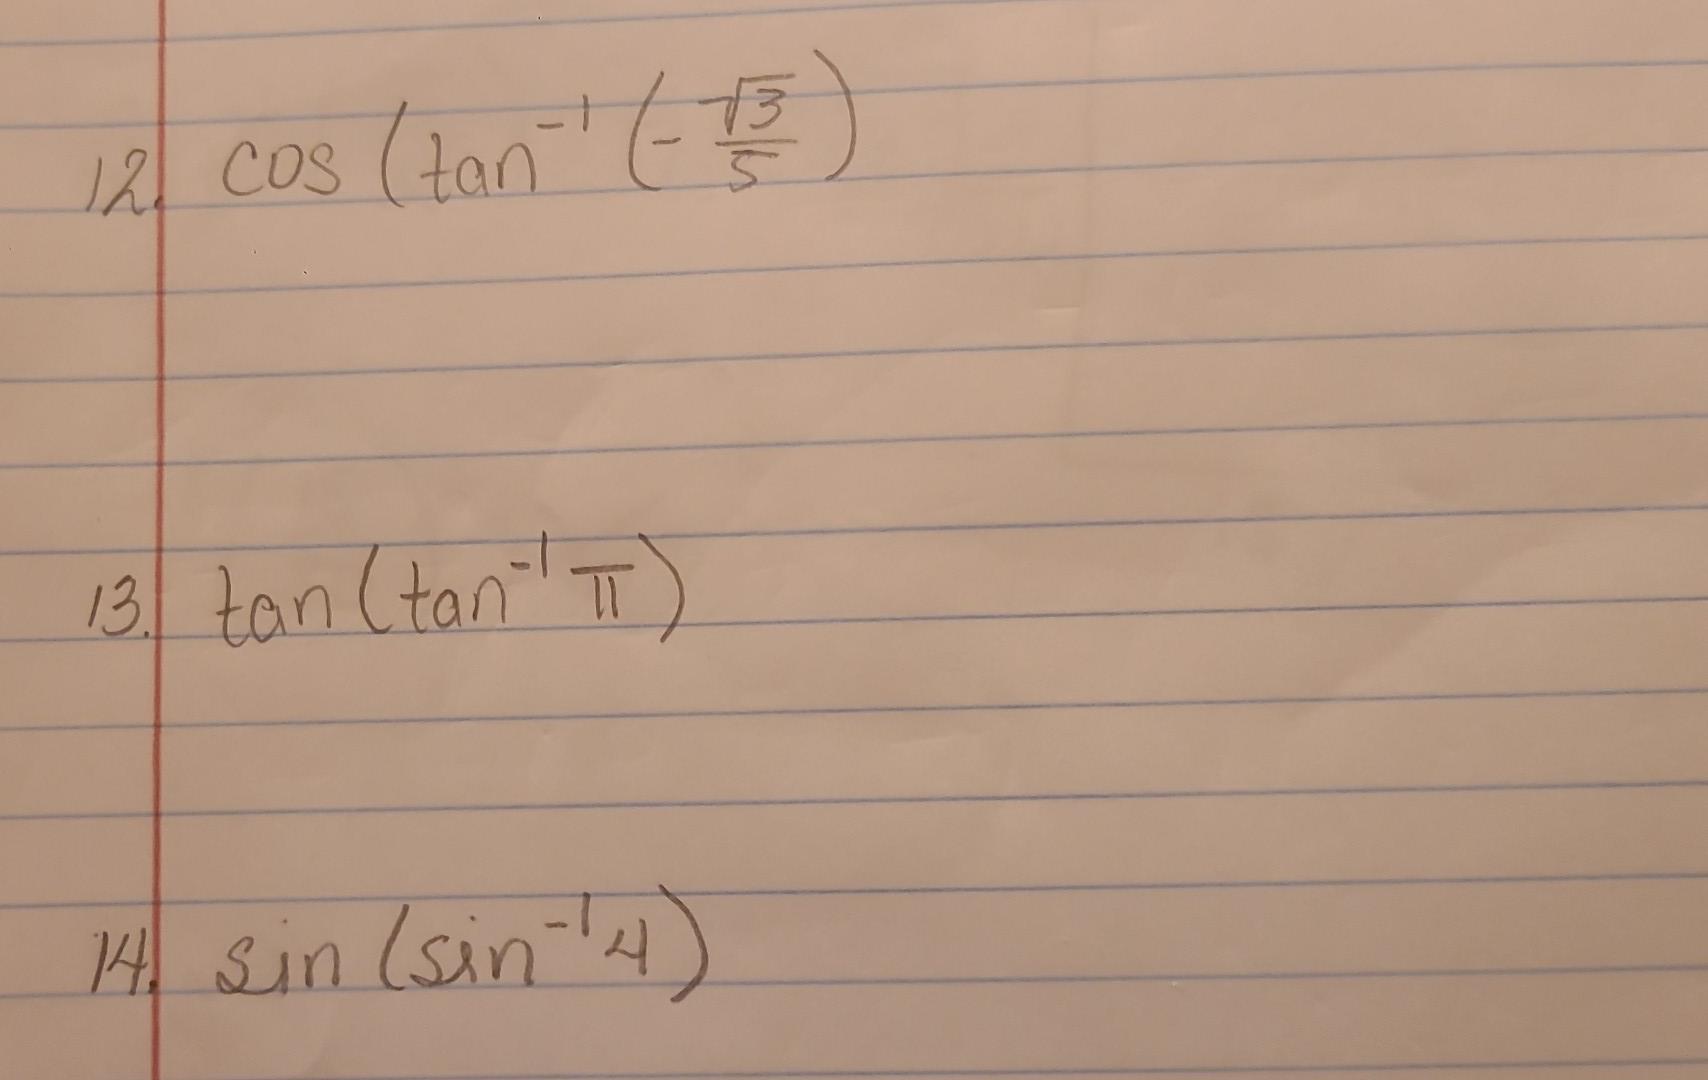 12. cos (tan⁻¹ (-√3/5)
13. tan (tan⁻¹ π)
14. sin (sin⁻¹ 4)